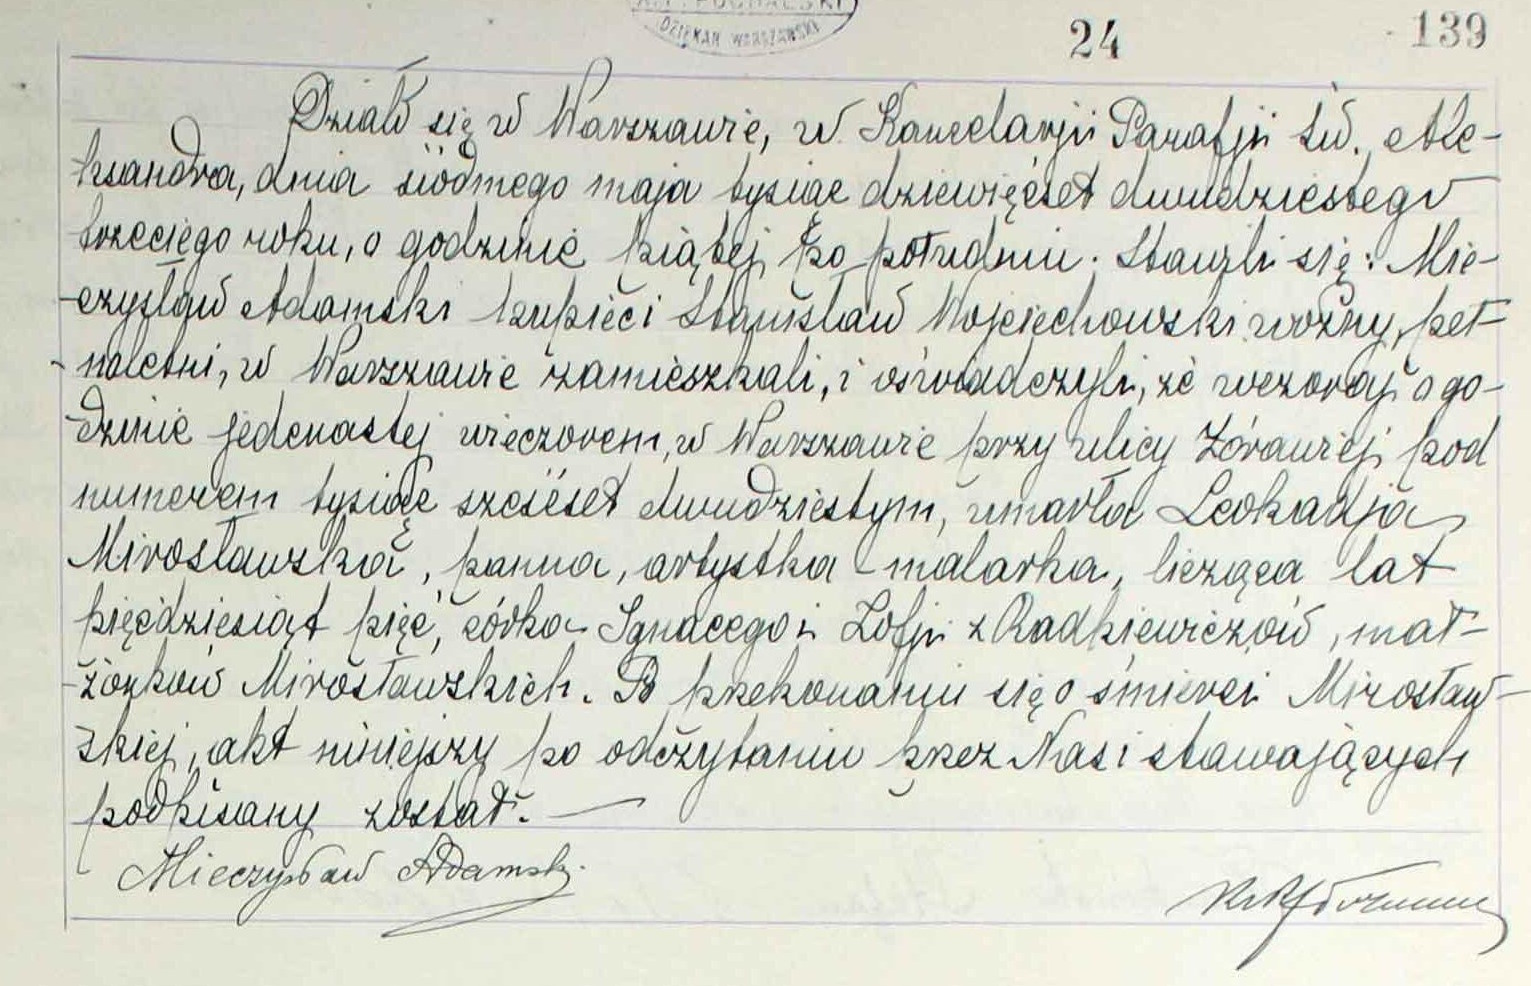 DZIEKAN WARSZAWSKI
24
139
Działo się w Warszawie, w Kancelarji Parafji Św. Ale-
ksandra, dnia siódmego maja tysiąc dziewięćset dwudziestego
trzeciego roku, o godzinie piątej po południu. Stawili się: Mie-
czysław Adamski kupiec i Stanisław Wojciechowski woźny, peł-
noletni, w Warszawie zamieszkali, i oświadczyli, że wczoraj o go-
dzinie jedenastej wieczorem, w Warszawie przy ulicy Żórawiej pod
numerem tysiąc sześćset dwudziestym, umarła Leokadja
Mirosławska, panna, artystka-malarka, licząca lat
pięćdziesiąt pięć, córka Ignacego i Zofji z Radkiewiczów, mał-
żonków Mirosławskich. Po przekonaniu się o śmierci Mirosław-
skiej, akt niniejszy po odczytaniu przez Nas i stawających
podpisany został.
Mieczysław Adamski